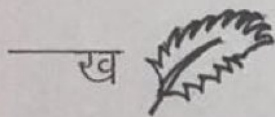 ____ख